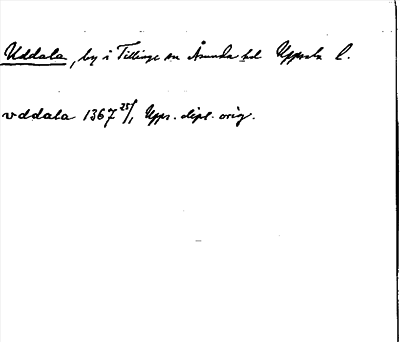 Uddala, by i Tillinge sn Åsunda hd Uppsala l.
vddala 1367 25/1, Upps. dipl. orig.